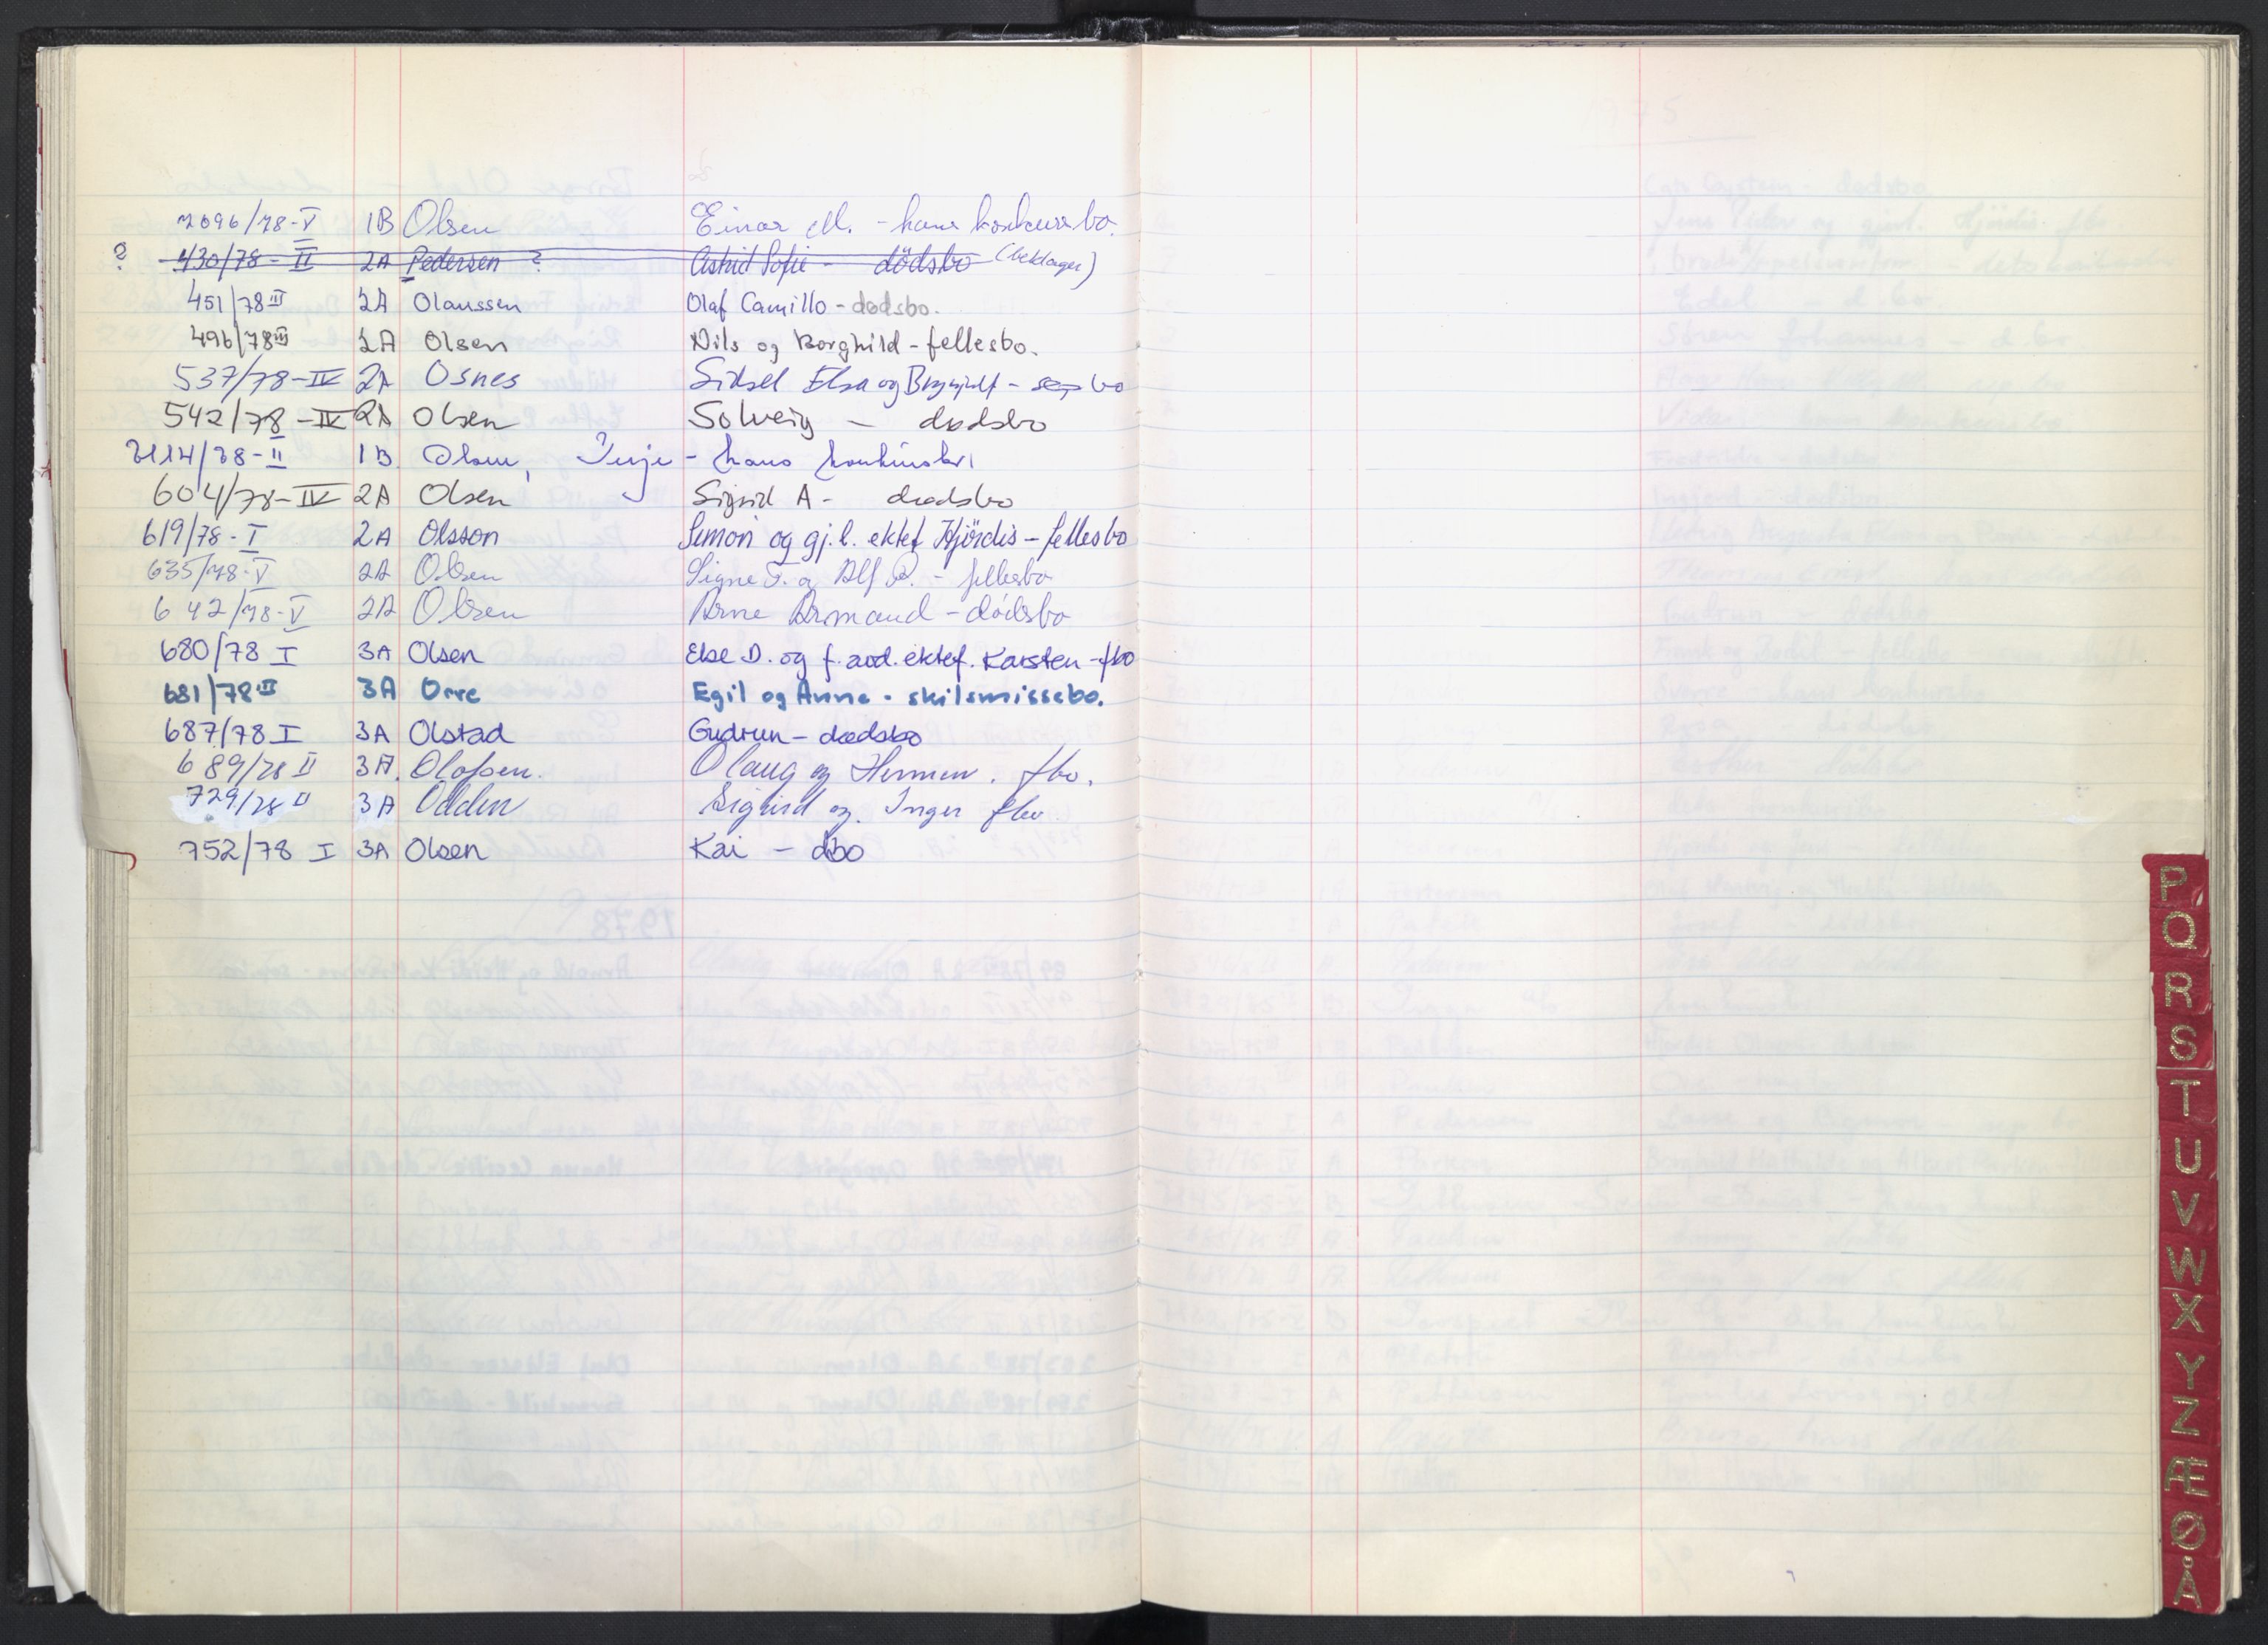 2096/78-V 1B Olsen Einar M. - hans konkursbo.
? 430/78-II 2A Pedersen ? Astrid Sofie - dödsbo (beklager)
451/78 III 2A Olaussen Olaf Camillo - dødsbo.
496/78 III 2A Olsen Nils og Borghild - fellesbo.
537/78-IV 2A Osnes Sidsel Elsa og - sep bo
542/78-IV 2A Olsen Solveig - dødsbo
2114/78-II 1B Olsen, Terje - hans konkursbo
604/78-IV 2A Olsen Sigrid A - dødsbo
619/78-I 2A Olsson Simon og gj.l. ektef Hjördis - fellesbo
635/78-V 2A Olsen Signe F. og Alf R. - fellesbo
642/78-V 2A Olsen Arne Armand - dödsbo
680/78 I 3A Olsen Else D. og f. avd. ektef. Karsten - fbo
681/78 III 3A Orre Egil og Anne - skilsmissebo.
687/78 I 3A Olstad Gudrun - dødsbo
689/78 II 3A. Olafsen. Olaug og Herman. fbo.
729/78 II 3A Odden Sigurd og. Inger fbo
752/78 I 3A Olsen Kai - dbo
P
Q
R
S
T
U
V
W
X
Y
Z
Æ
Ø
Å